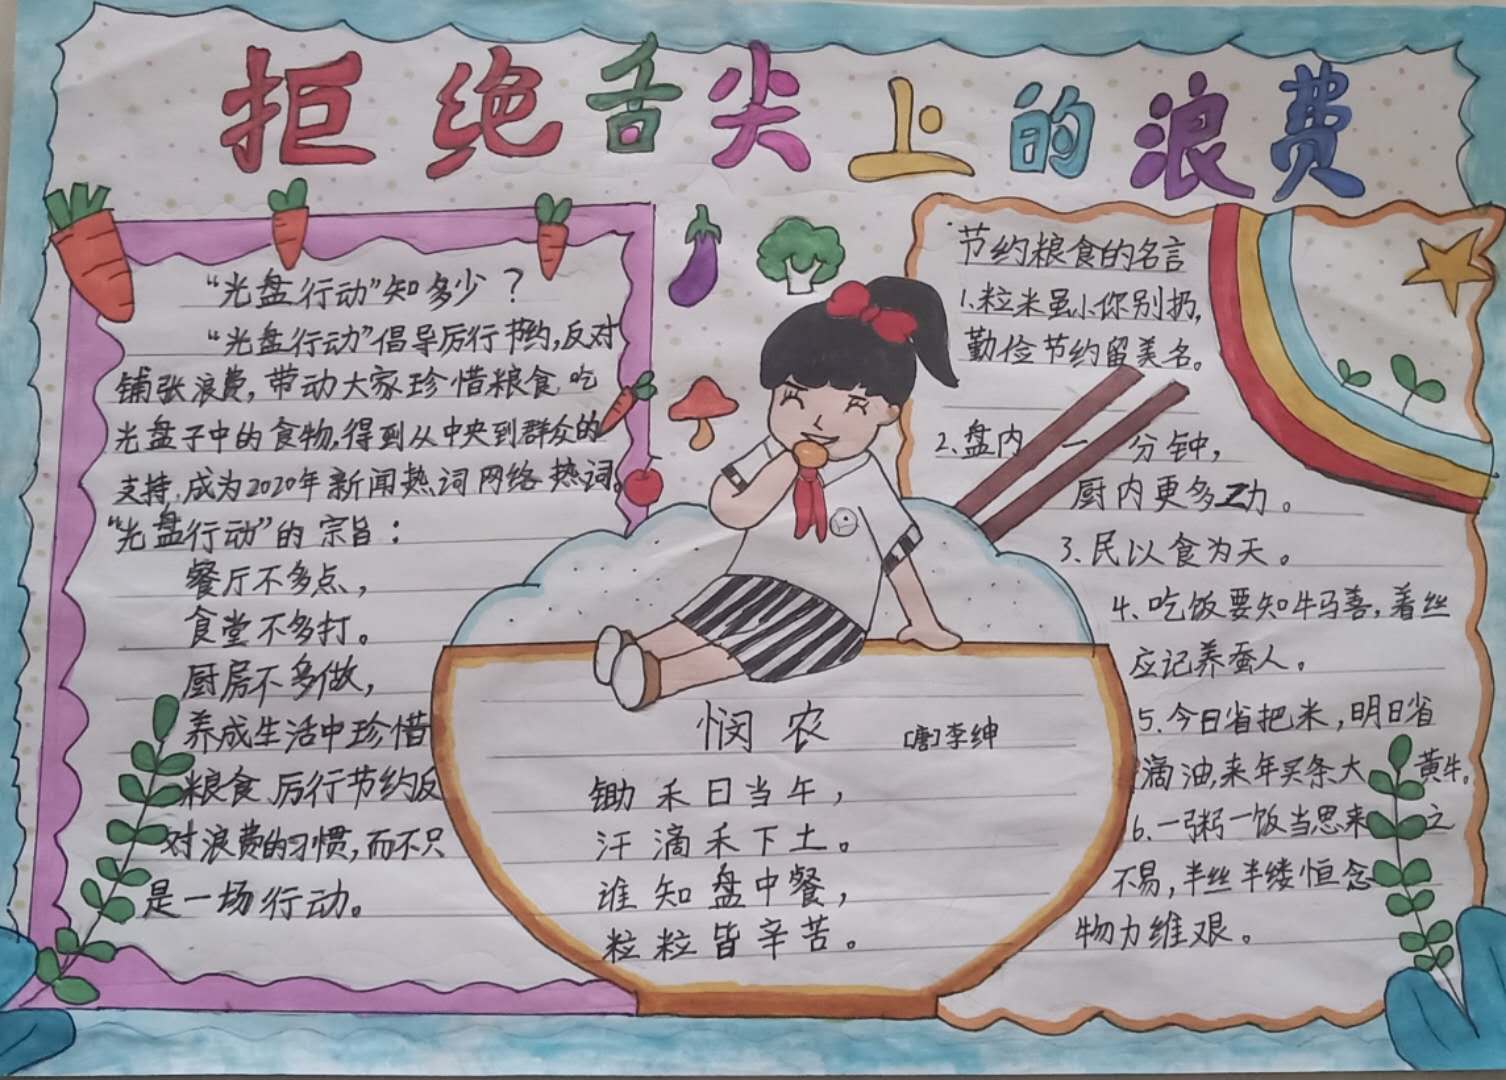 拒绝舌尖上的浪费
“光盘行动”知多少？
“光盘行动”倡导厉行节约,反对
铺张浪费,带动大家珍惜粮食,吃
光盘子中的食物,得到从中央到群众的
支持,成为2020年新闻热词网络热词。
“光盘行动”的宗旨：
餐厅不多点，
食堂不多打。
厨房不多做，
养成生活中珍惜
粮食、厉行节约反
对浪费的习惯,而不只
是一场行动。
悯农
[唐]李绅
锄禾日当午，
汗滴禾下土。
谁知盘中餐，
粒粒皆辛苦。
节约粮食的名言
1.粒米虽小你别扔,
勤俭节约留美名。
2.盘内一分钟，
厨内更多功。
3.民以食为天。
4.吃饭要知牛马善,着丝
应记养蚕人。
5.今日省把米,明日省
滴油,来年买条大黄牛。
6.一粥一饭当思来之
不易,半丝半缕恒念
物力维艰。